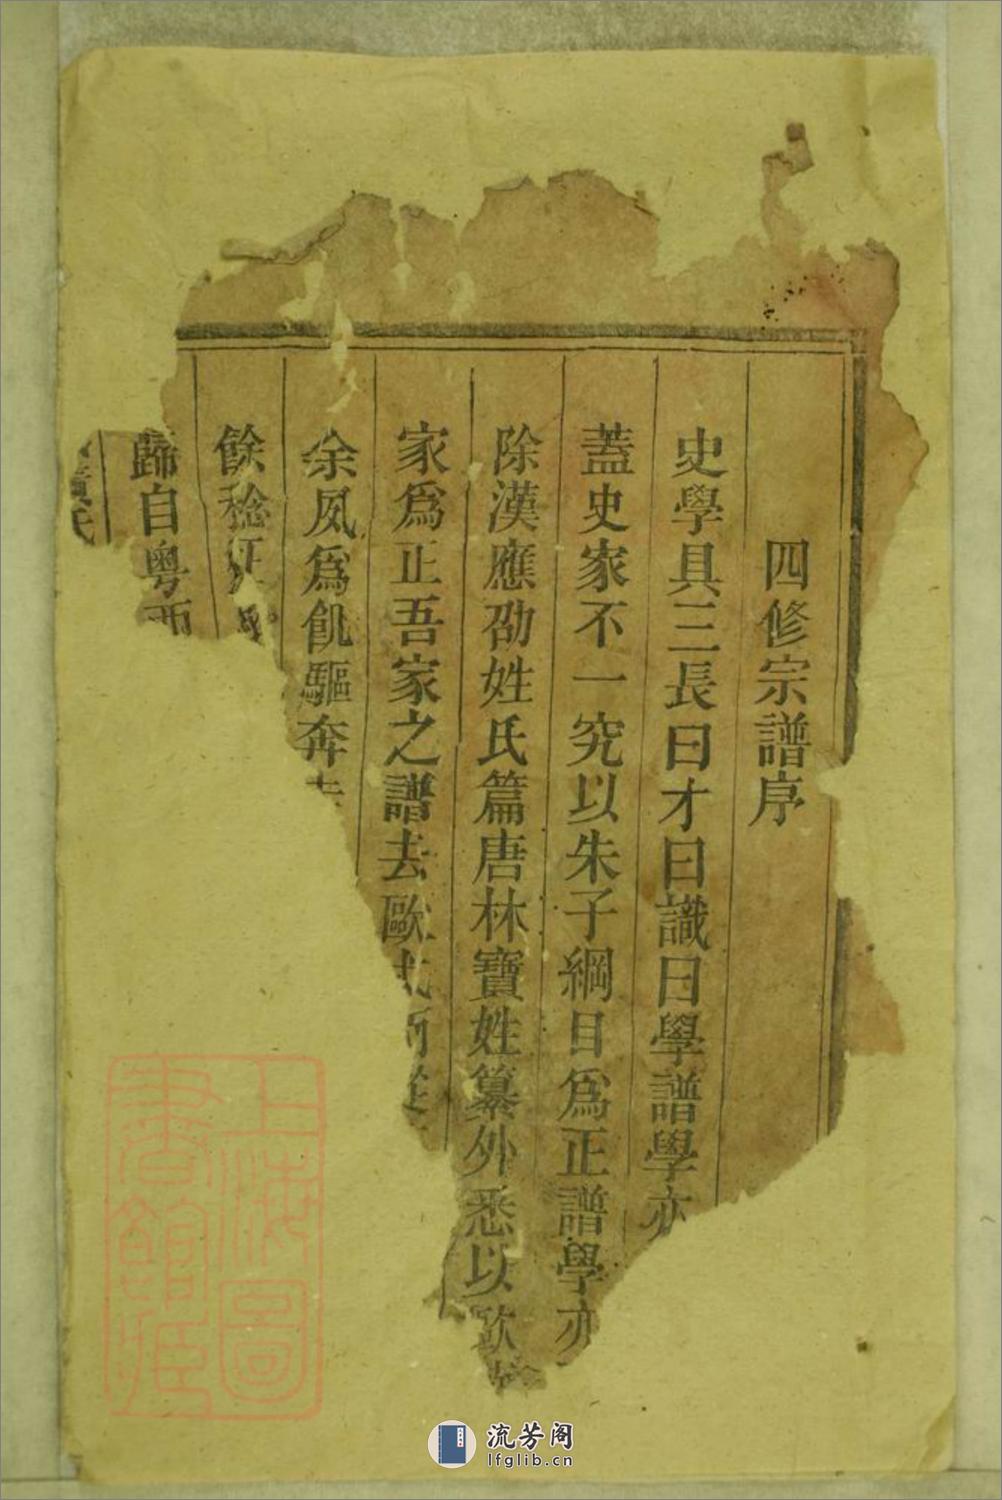 四修宗譜序
史學具三長曰才曰識曰學譜學亦
蓋史家不一究以朱子綱目爲正譜學亦
除漢應劭姓氏篇唐林寶姓纂外悉以歐
家爲正吾家之譜去歐
余夙爲飢驅奔走
餘稔
歸自粤西
上海圖
書館藏
流芳阁
lfglib.cn